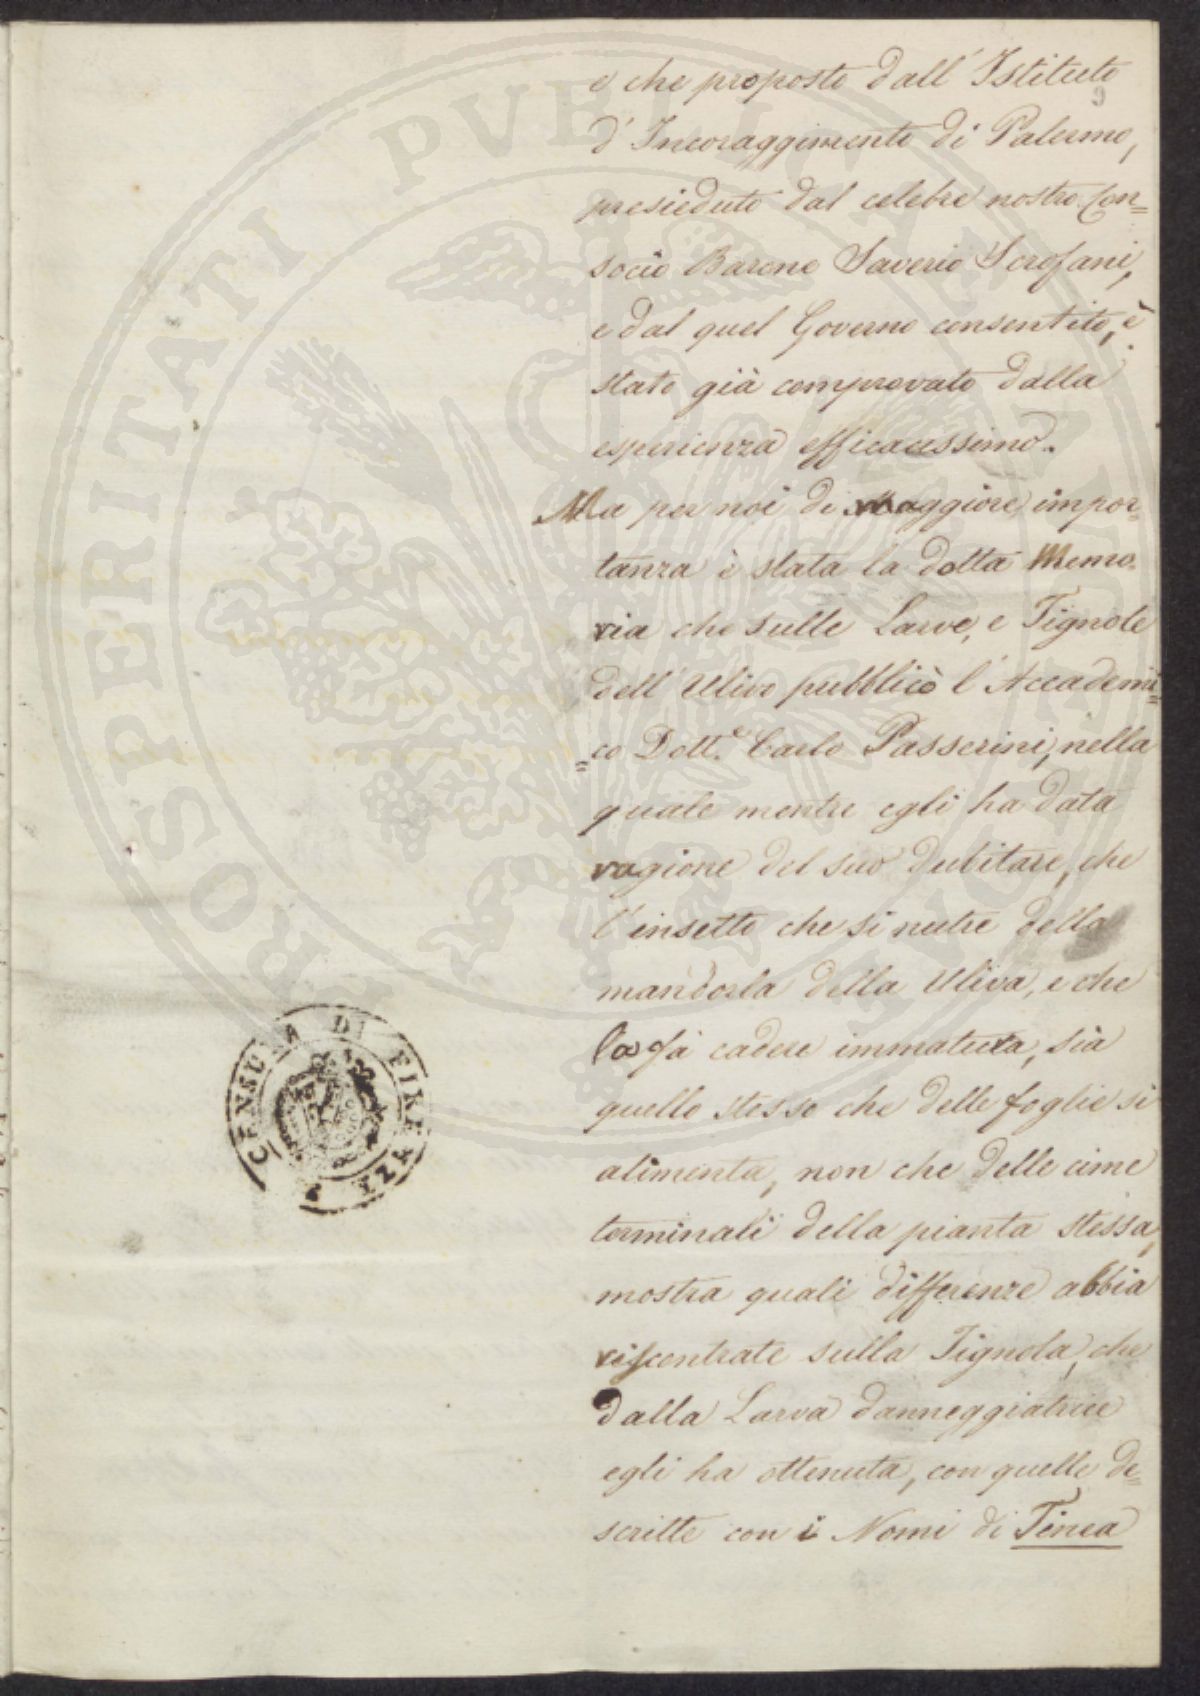 e che proposto dall' Istituto
9
d' Incoraggimento di Palermo,
presieduto dal celebre nostro Con=
socio Barone Saverio Scrofani,
e dal quel Governo consentito, è
stato già comprovato dalla
esperienza efficacissimo.
Ma per noi di maggiore impor-
tanza è stata la dotta Memo-
ria che sulle Larve, e Tignole
dell' Ulivo pubblicò l' Accademi=
=co Dott.e Carlo Passerini, nella
quale mentre egli ha data
ragione del suo dubitare, che
l' insetto che si nutre della
mandorla della Uliva, e che
la fà cadere immatura, sia
quello stesso che delle foglie si
alimenta, non che delle cime
terminali della pianta stessa,
mostra quali differenze abbia
riscontrate sulla Tignola, che
dalla Larva danneggiatrice
egli ha ottenuta, con quelle de=
scritte con i Nomi di Tinea
CENSURA DI FIRENZE
PROSPERITATI PUBLICAE